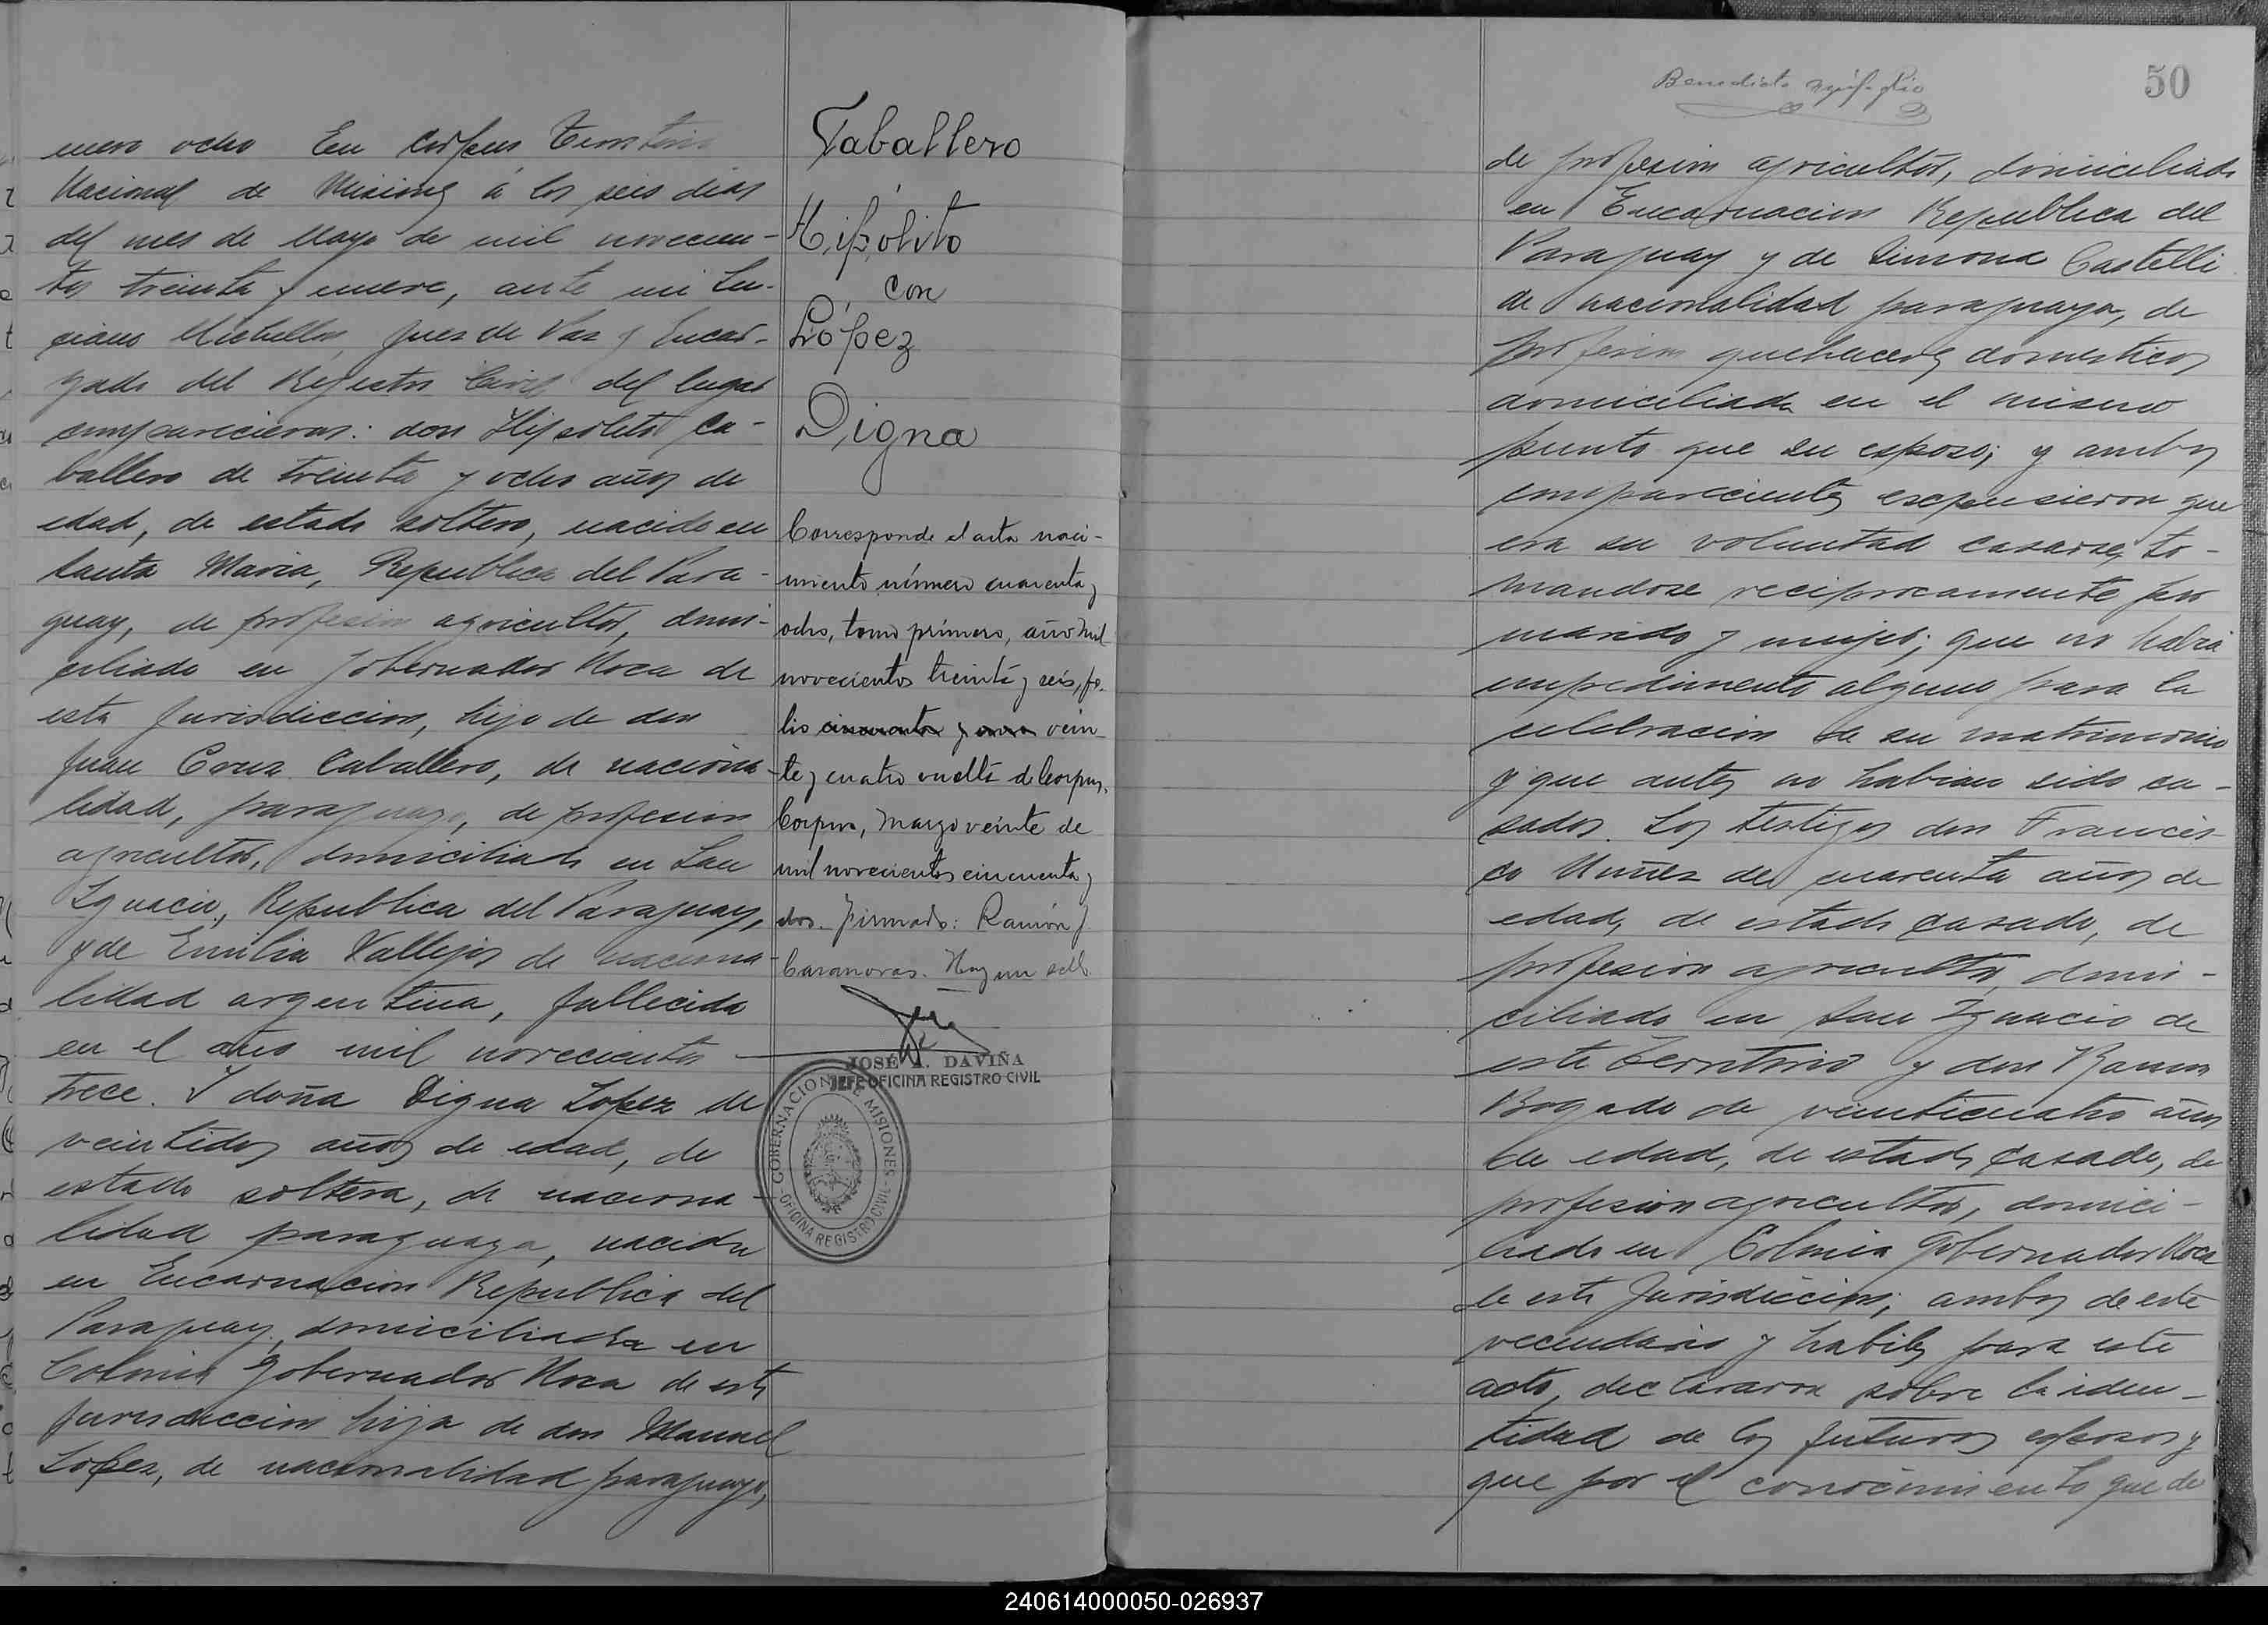 mero ocho En Corpus Territorio
Nacional de Misiones á los seis dias
del mes de Mayo de mil novecien-
tos treinta y nueve, ante mi Lu-
ciano Juez de Paz y Encar-
gado del Registro Civil del lugar
comparecieron: don Hipolito Ca-
ballero de treinta y ocho años de
edad, de estado soltero, nacido en
Santa Maria, Republica del Para-
guay, de profesion agricultor, domi-
ciliado en Gobernador Roca de
esta Jurisdiccion, hijo de don
Juan Cruz Caballero, de naciona-
lidad, paraguayo, de profesion
agricultor, domiciliado en San
Ignacio, Republica del Paraguay,
y de Emilia Vallejos de naciona-
lidad argentina, fallecida
en el año mil novecientos
trece. Y doña Digna Lopez de
veintidos años de edad, de
estado soltera, de naciona-
lidad paraguaya, nacida
en Encarnacion Republica del
Paraguay, domiciliada en
Colonia Gobernador Roca de esta
Jurisdiccion hija de don Manuel
Lopez, de nacionalidad paraguayo,
Caballero
Hipólito
con
López
Digna
Corresponde el acta naci-
miento número cuarenta y
ocho, tomo primero, año mil
novecientos treinta y seis, fo-
lio cincuenta y vein-
te y cuatro vuelta de Corpus.
Corpus, Marzo veinte de
mil novecientos cincuenta y
dos. Firmado: Ramón J.
Casanovas. Hay un sello.
JOSÉ A. DAVIÑA
JEFE OFICINA REGISTRO CIVIL
GOBERNACION DE MISIONES
OFICINA REGISTRO CIVIL
50
Benedicto
de profesion agricultor, domiciliado
en Encarnacion Republica del
Paraguay y de Simona Castelli
de nacionalidad paraguaya, de
profesion quehaceres domesticos
domiciliada en el mismo
punto que su esposo; y ambos
comparecientes expusieron que
era su voluntad casarse, to-
mandose reciprocamente por
marido y mujer; que no habia
impedimento alguno para la
celebracion de su matrimonio
y que antes no habian sido ca-
sados. Los testigos don Francis-
co Nuñez de cuarenta años de
edad, de estado casado, de
profesion agricultor, domi-
ciliado en San Ignacio de
este Territorio y don Ramon
Bogado de veinticuatro años
de edad, de estado casado, de
profesion agricultor, domici-
liado en Colonia Gobernador Roca
de esta Jurisdiccion; ambos de este
vecindario y habiles para este
acto, declararon sobre la iden-
tidad de los futuros esposos y
que por el conocimiento que de
240614000050-026937